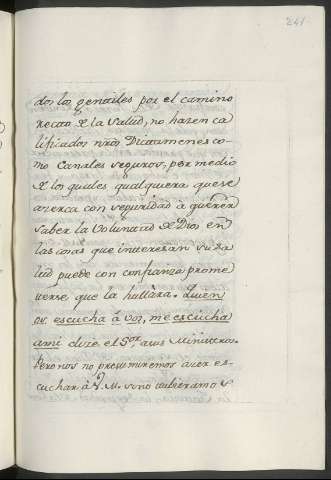 241
dos los gentiles por el camino
recto de la salud, no hazen ca
lificados nr̃os Dictamenes co-
mo Canales seguros, por medio
de los quales qualquiera que se
acerca con seguridad à querer
saber la Voluntad de Dios en
las cosas que interesan su sa
lud puede con confianza prome
terse que la hallàra. Quien
os escucha â voz, me escucha
ami dize el S.or a sus Ministros.
Pero nos no presumiremos azer es-
cuchar à V. M. sino ubieramos